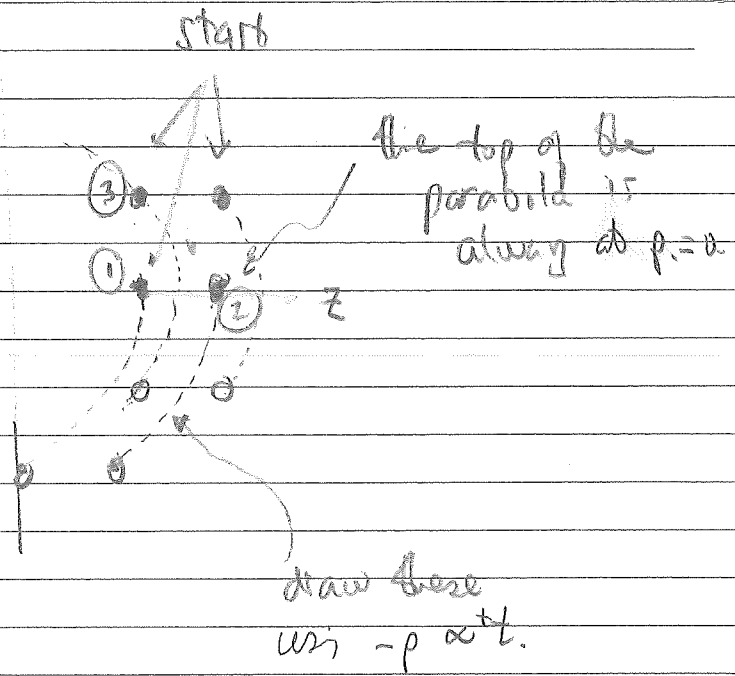 start
the top of the
③ parabola is
always at p.=0
①
② z
draw these
using -p ∝ +t.